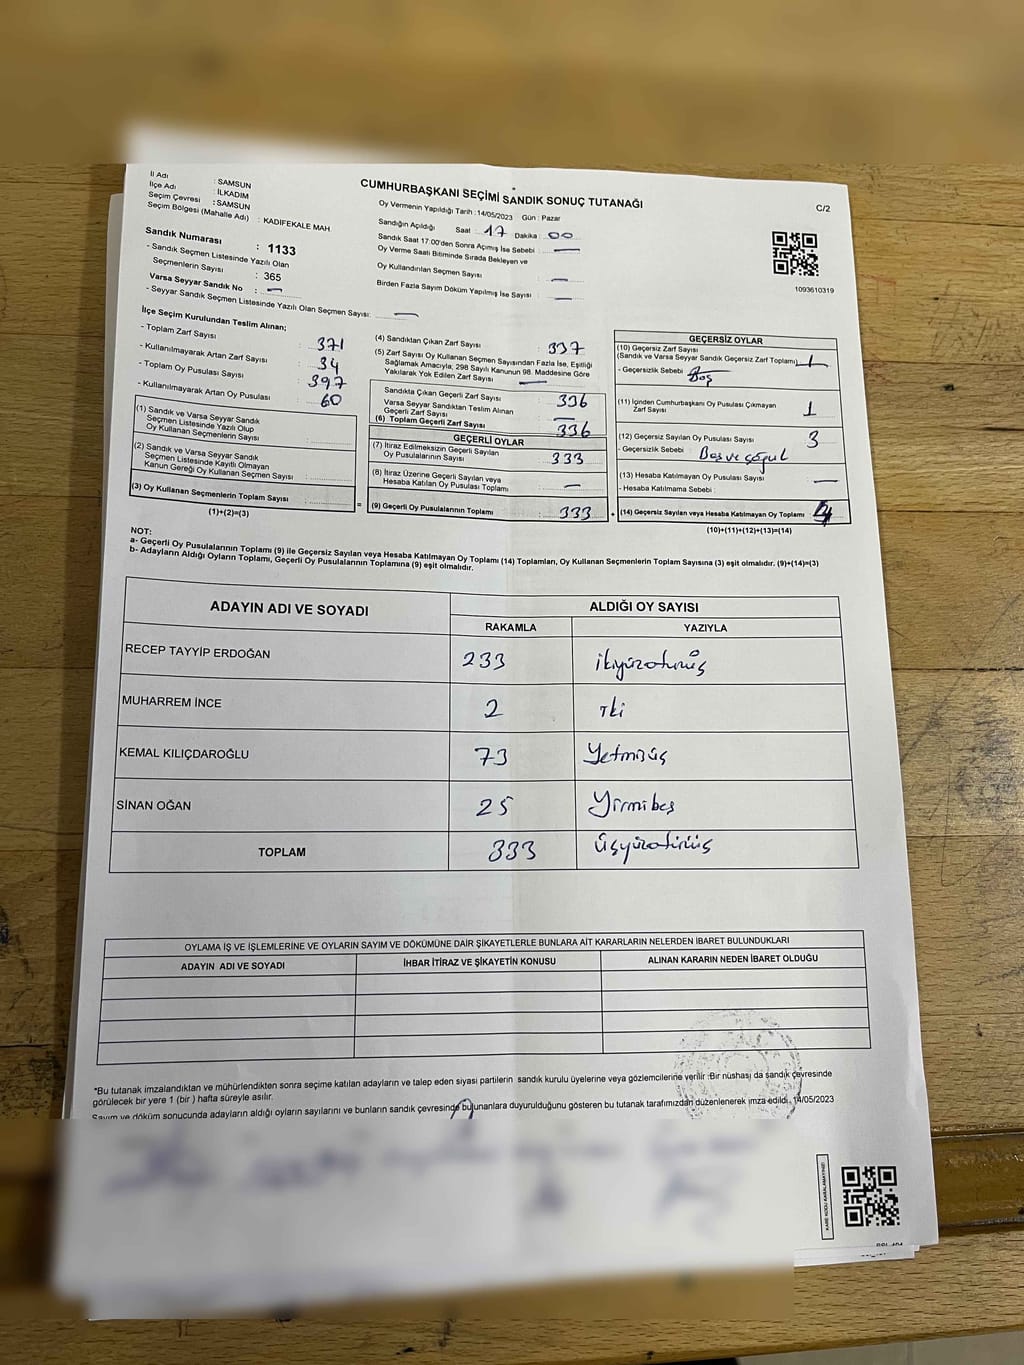 İl Adı : SAMSUN
İlçe Adı : İLKADIM
Seçim Çevresi : SAMSUN
Seçim Bölgesi (Mahalle Adı) : KADIFEKALE MAH
CUMHURBAŞKANI SEÇİMİ SANDIK SONUÇ TUTANAĞI
C/2
Oy Vermenin Yapıldığı Tarih :14/05/2023 Gün : Pazar
Sandığın Açıldığı Saat 17 Dakika : 00
Sandık Saat 17:00'den Sonra Açımış İse Sebebi : —
Oy Verme Saati Bitiminde Sırada Bekleyen ve
Oy Kullandırılan Seçmen Sayısı : —
Birden Fazla Sayım Döküm Yapılmış İse Sayısı : —
1093610319
Sandık Numarası : 1133
- Sandık Seçmen Listesinde Yazılı Olan
Seçmenlerin Sayısı : 365
Varsa Seyyar Sandık No : —
- Seyyar Sandık Seçmen Listesinde Yazılı Olan Seçmen Sayısı: —
İlçe Seçim Kurulundan Teslim Alınan;
- Toplam Zarf Sayısı : 371
- Kullanılmayarak Artan Zarf Sayısı : 34
- Toplam Oy Pusulası Sayısı : 397
- Kullanılmayarak Artan Oy Pusulası : 60
(1) Sandık ve Varsa Seyyar Sandık
Seçmen Listesinde Yazılı Olup
Oy Kullanan Seçmenlerin Sayısı
(2) Sandık ve Varsa Seyyar Sandık
Seçmen Listesinde Kayıtlı Olmayan
Kanun Gereği Oy Kullanan Seçmen Sayısı
(3) Oy Kullanan Seçmenlerin Toplam Sayısı :
(1)+(2)=(3)
(4) Sandıktan Çıkan Zarf Sayısı : 337
(5) Zarf Sayısı Oy Kullanan Seçmen Sayısından Fazla İse, Eşitliği
Sağlamak Amacıyla; 298 Sayılı Kanunun 98. Maddesine Göre
Yakılarak Yok Edilen Zarf Sayısı : —
Sandıkta Çıkan Geçerli Zarf Sayısı : 336
Varsa Seyyar Sandıktan Teslim Alınan
Geçerli Zarf Sayısı : —
(6) Toplam Geçerli Zarf Sayısı : 336
GEÇERLİ OYLAR
(7) İtiraz Edilmeksizin Geçerli Sayılan
Oy Pusulalarının Sayısı : 333
(8) İtiraz Üzerine Geçerli Sayılan veya
Hesaba Katılan Oy Pusulası Toplamı : —
= (9) Geçerli Oy Pusulalarının Toplamı : 333 +
GEÇERSİZ OYLAR
(10) Geçersiz Zarf Sayısı
(Sandık ve Varsa Seyyar Sandık Geçersiz Zarf Toplamı) 1
- Geçersizlik Sebebi : Boş
(11) İçinden Cumhurbaşkanı Oy Pusulası Çıkmayan
Zarf Sayısı : 1
(12) Geçersiz Sayılan Oy Pusulası Sayısı : 3
- Geçersizlik Sebebi : Boş ve çoğul
(13) Hesaba Katılmayan Oy Pusulası Sayısı : —
- Hesaba Katılmama Sebebi :
(14) Geçersiz Sayılan veya Hesaba Katılmayan Oy Toplamı : 4
(10)+(11)+(12)+(13)=(14)
NOT:
a- Geçerli Oy Pusulalarının Toplamı (9) ile Geçersiz Sayılan veya Hesaba Katılmayan Oy Toplamı (14) Toplamları, Oy Kullanan Seçmenlerin Toplam Sayısına (3) eşit olmalıdır. (9)+(14)=(3)
b- Adayların Aldığı Oyların Toplamı, Geçerli Oy Pusulalarının Toplamına (9) eşit olmalıdır.
ADAYIN ADI VE SOYADI ALDIĞI OY SAYISI
RAKAMLA YAZIYLA
RECEP TAYYİP ERDOĞAN 233 ikiyüzotuzüç
MUHARREM İNCE 2 iki
KEMAL KILIÇDAROĞLU 73 Yetmişüç
SİNAN OĞAN 25 Yirmibeş
TOPLAM 333 üçyüzotuzüç
OYLAMA İŞ VE İŞLEMLERİNE VE OYLARIN SAYIM VE DÖKÜMÜNE DAİR ŞİKAYETLERLE BUNLARA AİT KARARLARIN NELERDEN İBARET BULUNDUKLARI
ADAYIN ADI VE SOYADI İHBAR İTİRAZ VE ŞİKAYETİN KONUSU ALINAN KARARIN NEDEN İBARET OLDUĞU
*Bu tutanak imzalandıktan ve mühürlendikten sonra seçime katılan adayların ve talep eden siyasi partilerin sandık kurulu üyelerine veya gözlemcilerine verilir. Bir nüshası da sandık çevresinde
görülecek bir yere 1 (bir ) hafta süreyle asılır.
Sayım ve döküm sonucunda adayların aldığı oyların sayılarını ve bunların sandık çevresinde bulunanlara duyurulduğunu gösteren bu tutanak tarafımızdan düzenlenerek imza edildi. 14/05/2023
KARE KODU KARALAMAYINIZ!